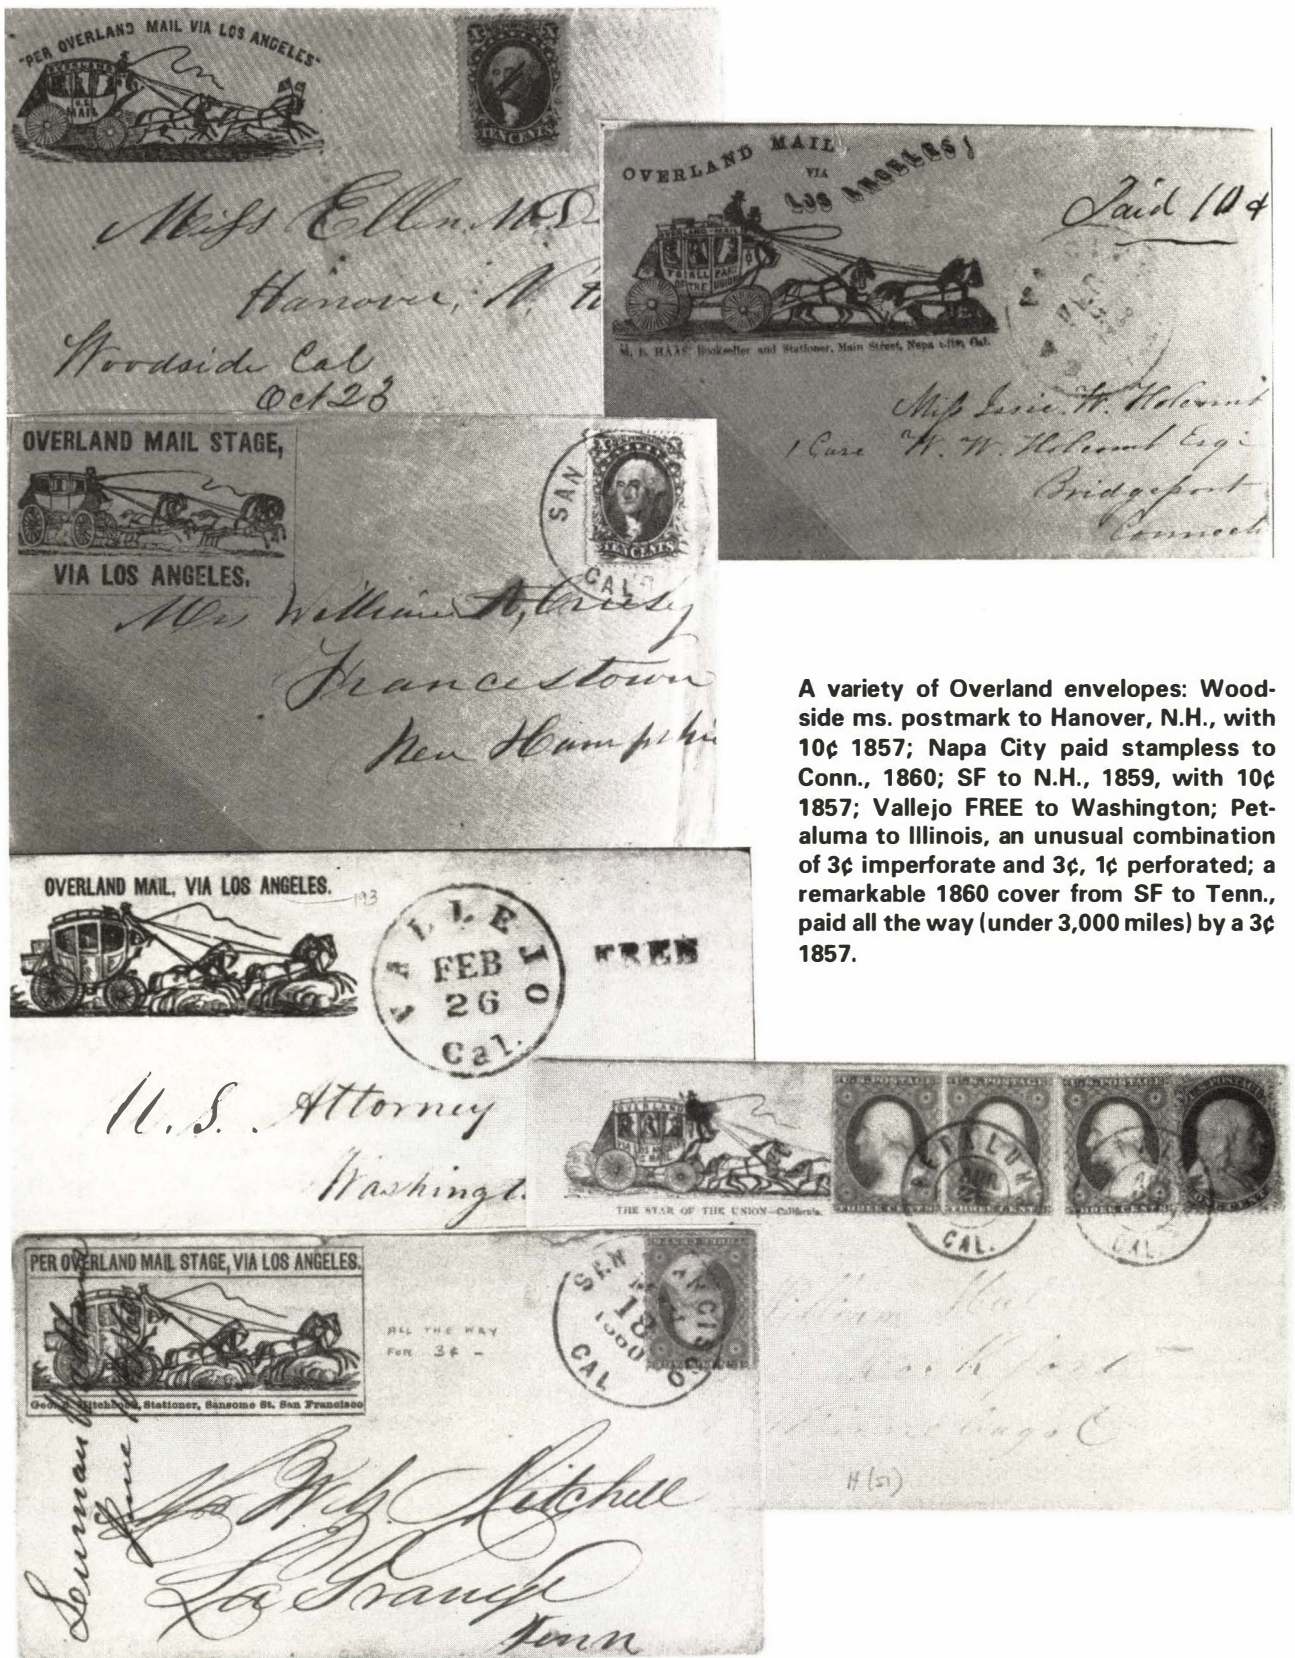 "PER OVERLAND MAIL VIA LOS ANGELES"
OVERLAND
U.S.
MAIL
TEN CENTS
Miss Ellen M. D
Hanover, N. H
Woodside Cal
Oct 23
OVERLAND MAIL
VIA
LOS ANGELES!
OVERLAND-MAIL
TO ALL PART
OF THE UNION
Paid 10¢
M. D. HAAS, Bookseller and Stationer, Main Street, Napa City, Cal.
Miss Jssie. W. Holcomb
Care W. W. Holcomb Esq
Bridgeport
Connect
OVERLAND MAIL STAGE,
VIA LOS ANGELES.
SAN
CAL
TEN CENTS
Mrs William A,
Francestown
New Hampshir
A variety of Overland envelopes: Wood-
side ms. postmark to Hanover, N.H., with
10¢ 1857; Napa City paid stampless to
Conn., 1860; SF to N.H., 1859, with 10¢
1857; Vallejo FREE to Washington; Pet-
aluma to Illinois, an unusual combination
of 3¢ imperforate and 3¢, 1¢ perforated; a
remarkable 1860 cover from SF to Tenn.,
paid all the way (under 3,000 miles) by a 3¢
1857.
OVERLAND MAIL, VIA LOS ANGELES.
193
VALLEJO
FEB
26
Cal.
FREE
U. S. Attorney
Washingt
OVERLAND
THE STAR OF THE UNION—California.
U.S. POSTAGE
THREE CENTS
U.S. POSTAGE
THREE CENTS
U.S. POSTAGE
THREE CENTS
U.S. POSTAGE
ONE CENT
PETALUMA
CAL.
CAL.
William
H (51)
PER OVERLAND MAIL STAGE, VIA LOS ANGELES.
Geo. Hitchcock, Stationer, Sansome St. San Francisco
ALL THE WAY
FOR 3¢ -
SAN FRANCISCO
18
1860
CAL
Mitchell
La Grange
Tenn